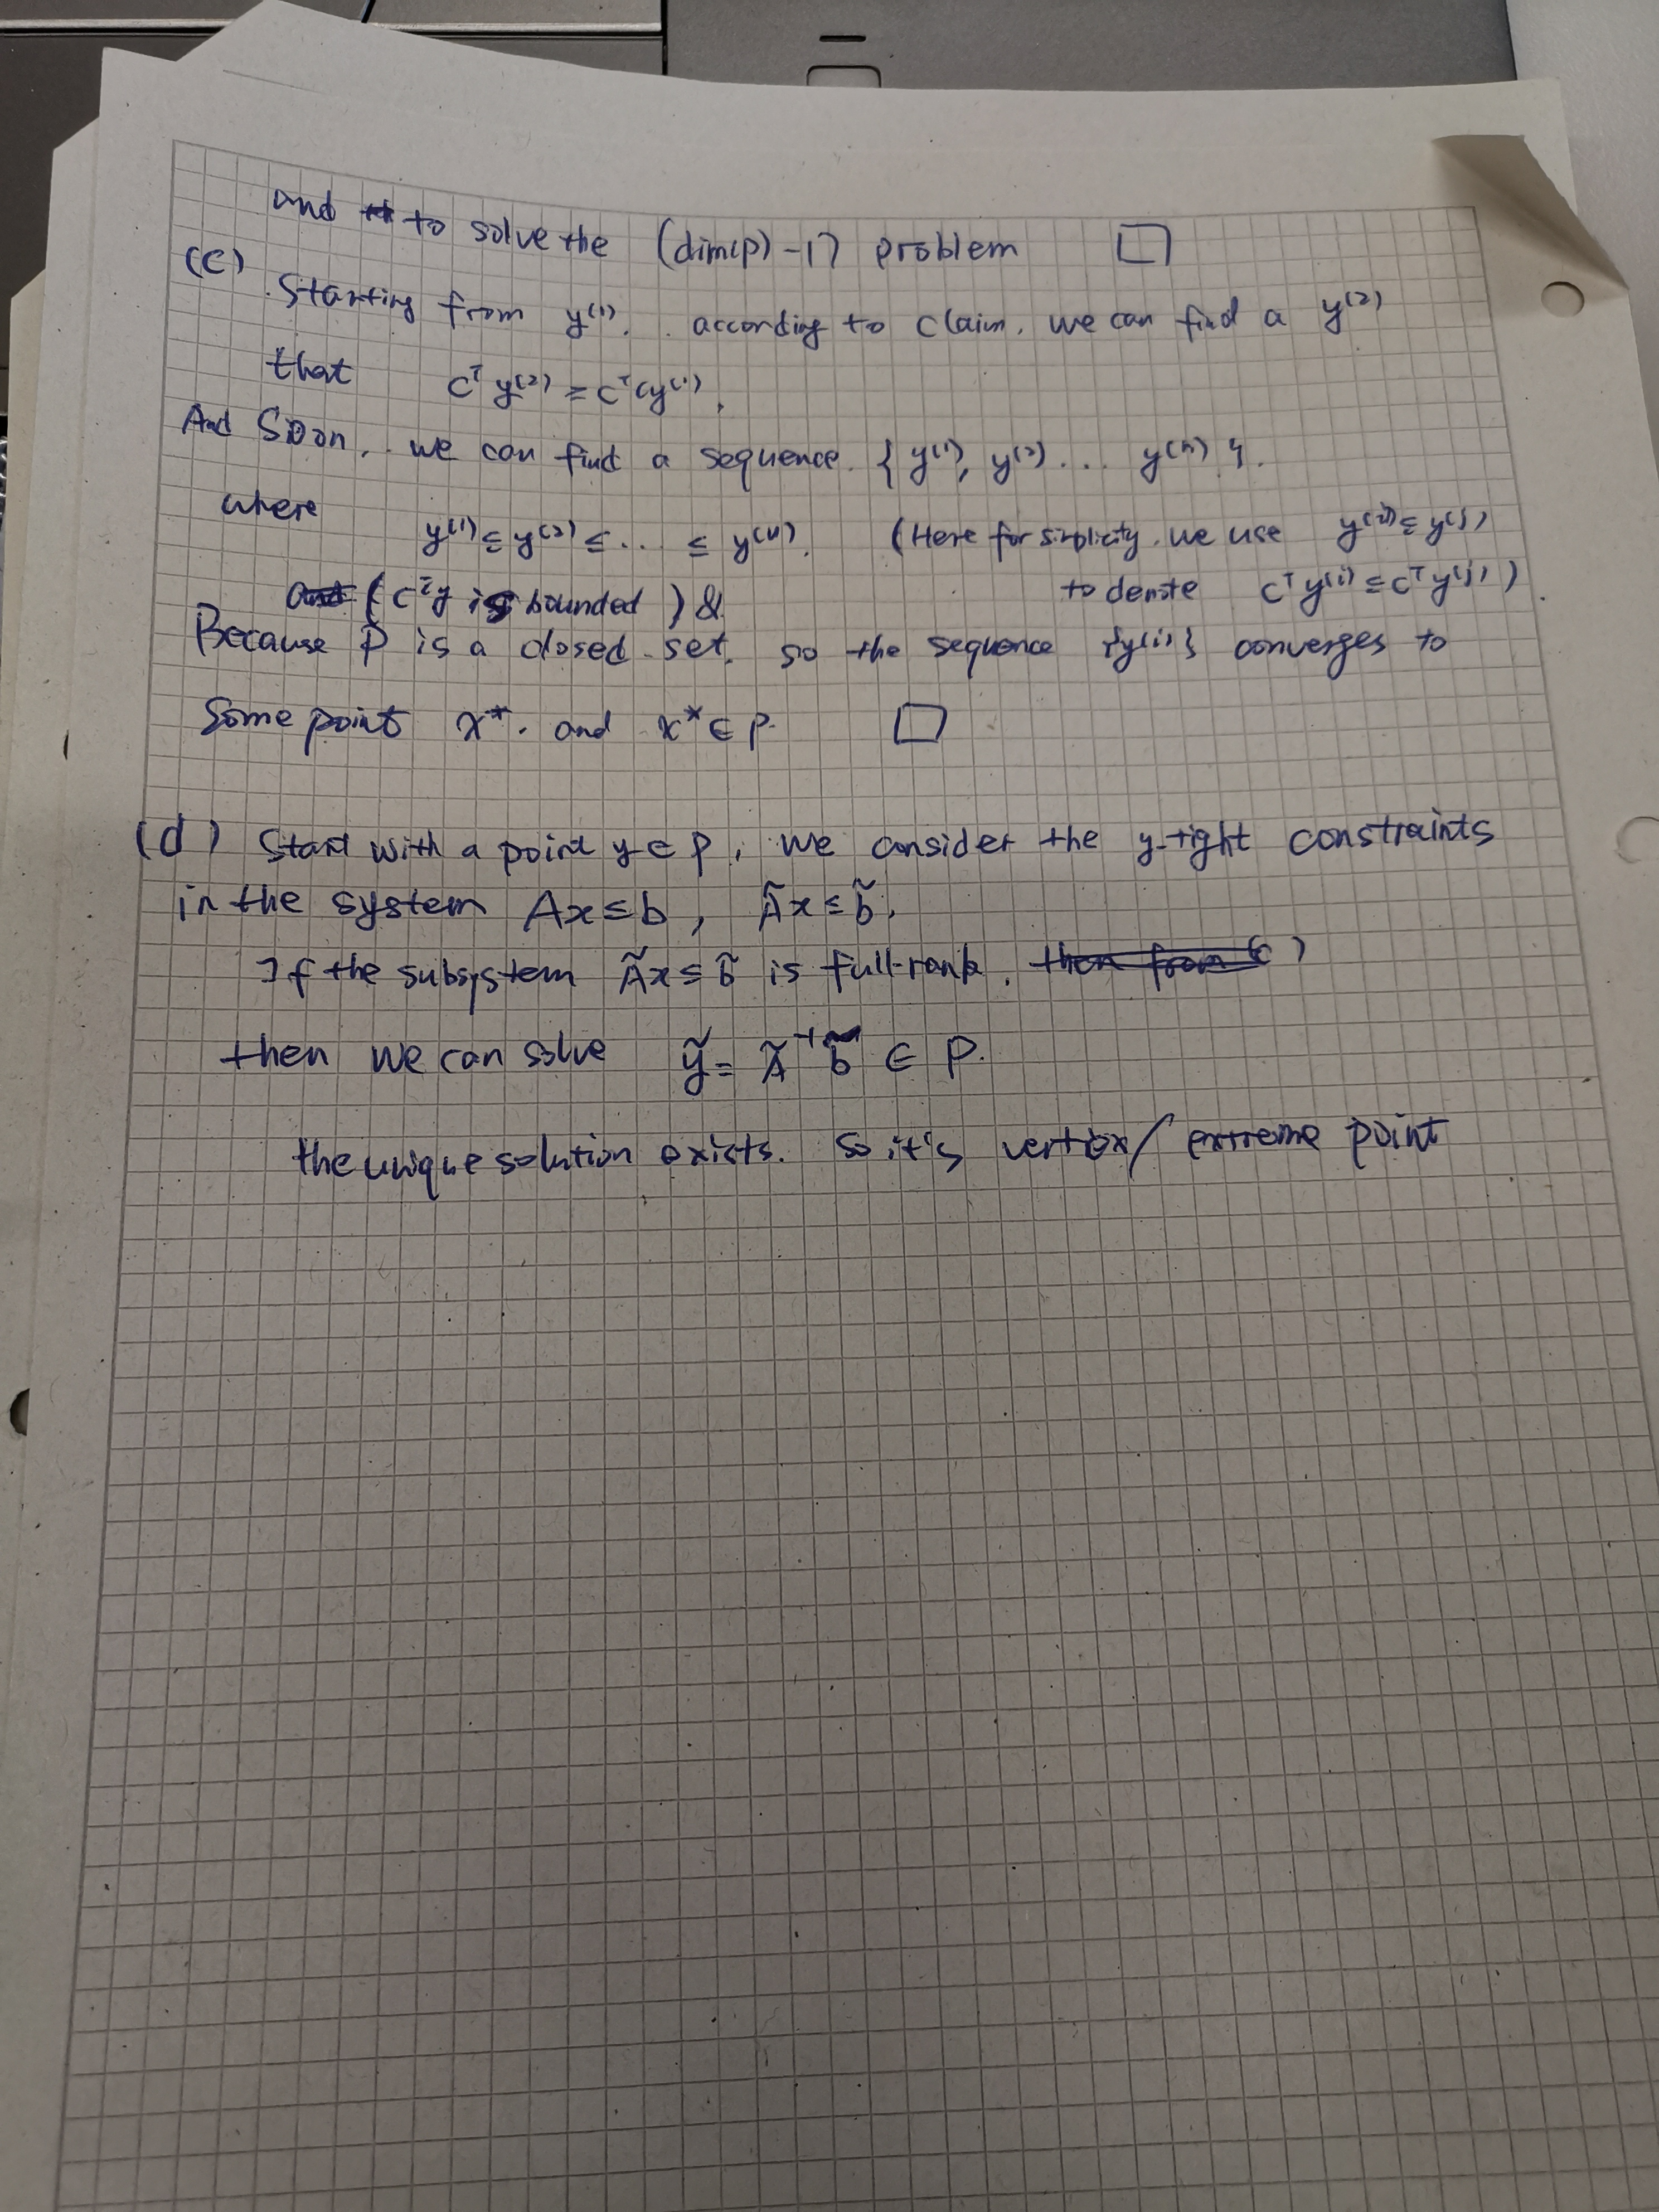 and to solve the (dim(P)-1) problem □
(c) Starting from y⁽¹⁾, according to claim, we can find a y⁽²⁾
that cᵀy⁽²⁾ ≥ cᵀ(y⁽¹⁾).
And so on, we can find a sequence {y⁽¹⁾, y⁽²⁾ ... y⁽ⁿ⁾}.
where y⁽¹⁾ ≤ y⁽²⁾ ≤ ... ≤ y⁽ⁿ⁾. (Here for simplicity, we use y⁽ⁱ⁾ ≤ y⁽ʲ⁾
to denote cᵀy⁽ⁱ⁾ ≤ cᵀy⁽ʲ⁾).
(cᵀy is bounded) &
Because P is a closed set, so the sequence {y⁽ⁱ⁾} converges to
some point x*. and x* ∈ P. □
(d) Start with a point y ∈ P, we consider the y-tight constraints
in the system Ax ≤ b, Ãx ≤ b̃.
If the subsystem Ãx ≤ b̃ is full-rank,
then we can solve ỹ = Ã⁻¹b̃ ∈ P.
the unique solution exists. So it's vertex/extreme point